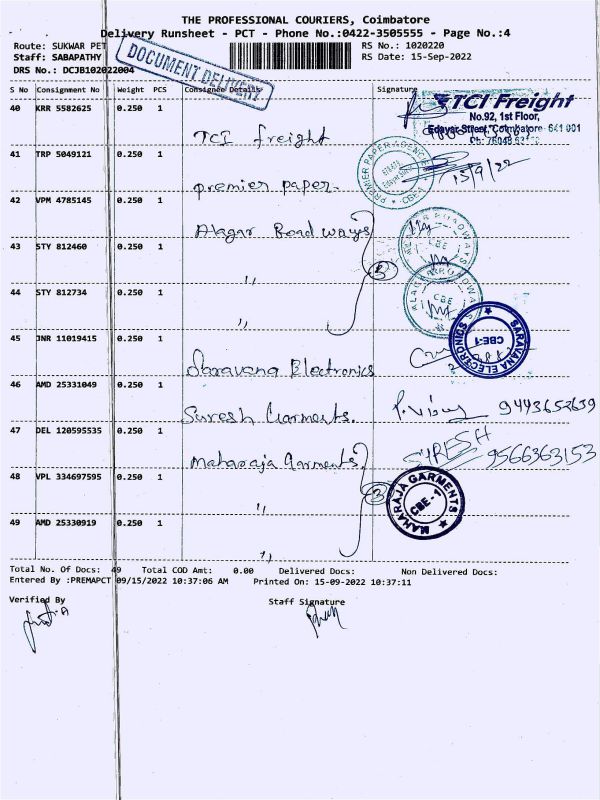 THE PROFESSIONAL COURIERS, Coimbatore
Delivery Runsheet - PCT - Phone No.:0422-3505555 - Page No.:4
Route: SUKWAR PET
RS No.: 1020220
Staff: SABAPATHY
RS Date: 15-Sep-2022
DRS No.: DCJB102022004
DOCUMENT DELIVERY
S No Consignment No Weight PCS Consignee Details Signature
40 KRR 5582625 0.250 1 TCI freight
TCI Freight
No.92, 1st Floor,
Edayar Street, Coimbatore- 641 001
41 TRP 5049121 0.250 1 premier paper-
PREMIER PAPER AGENCIES
CBE-1
15/9/22
42 VPM 4785145 0.250 1 Alagar Road ways
ALAGAR ROADWAYS
CBE
43 STY 812460 0.250 1 ,,
3
44 STY 812734 0.250 1 ,,
ALAGAR ROADWAYS
CBE
45 JNR 11019415 0.250 1 Saravana Electronics
SARAVANA ELECTRONICS
CBE-1
46 AMD 25331049 0.250 1 Suresh Garments. 9443652639
47 DEL 120595535 0.250 1 Maharaja Garments
SURESH 9566363153
48 VPL 334697595 0.250 1 ,,
3
MAHARAJA GARMENTS
CBE - 1
49 AMD 25330919 0.250 1 ,,
Total No. Of Docs: 49 Total COD Amt: 0.00 Delivered Docs: Non Delivered Docs:
Entered By :PREMAPCT 09/15/2022 10:37:06 AM Printed On: 15-09-2022 10:37:11
Verified By Staff Signature